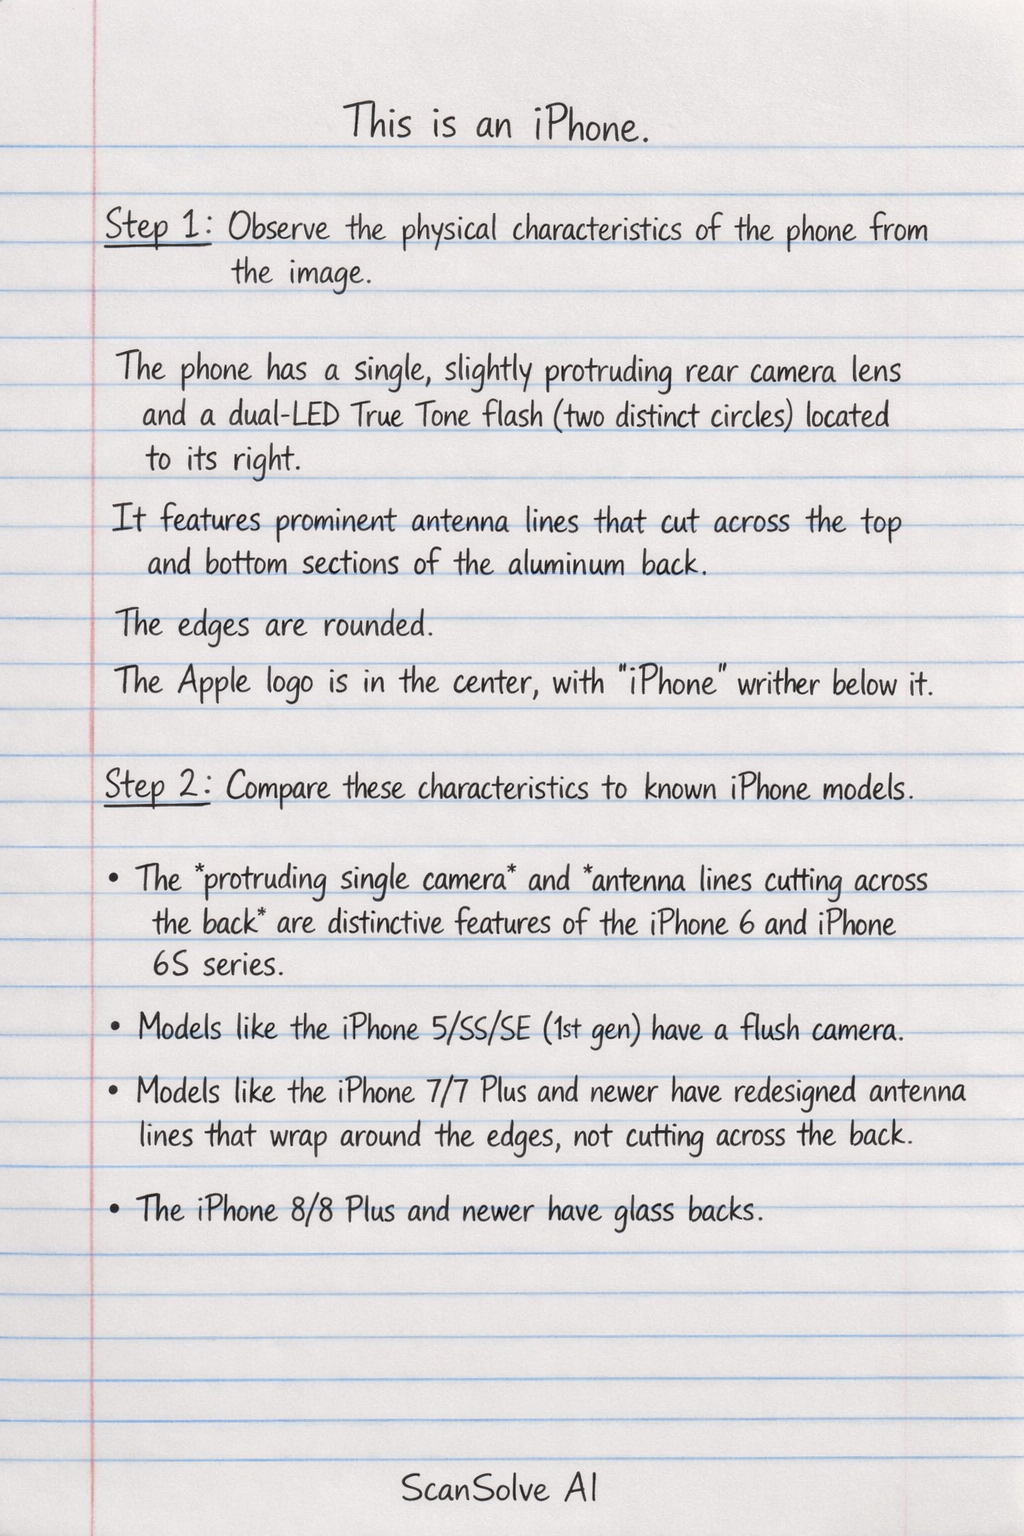 This is an iPhone.
Step 1: Observe the physical characteristics of the phone from
the image.
The phone has a single, slightly protruding rear camera lens
and a dual-LED True Tone flash (two distinct circles) located
to its right.
It features prominent antenna lines that cut across the top
and bottom sections of the aluminum back.
The edges are rounded.
The Apple logo is in the center, with "iPhone" writher below it.
Step 2: Compare these characteristics to known iPhone models.
• The *protruding single camera* and *antenna lines cutting across
the back* are distinctive features of the iPhone 6 and iPhone
6S series.
• Models like the iPhone 5/SS/SE (1st gen) have a flush camera.
• Models like the iPhone 7/7 Plus and newer have redesigned antenna
lines that wrap around the edges, not cutting across the back.
• The iPhone 8/8 Plus and newer have glass backs.
ScanSolve AI